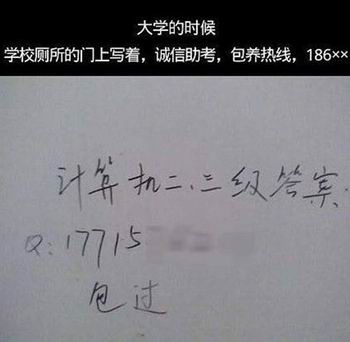 大学的时候
学校厕所的门上写着，诚信助考，包养热线，186××
计算机二、三级答案
Q：17715
包过